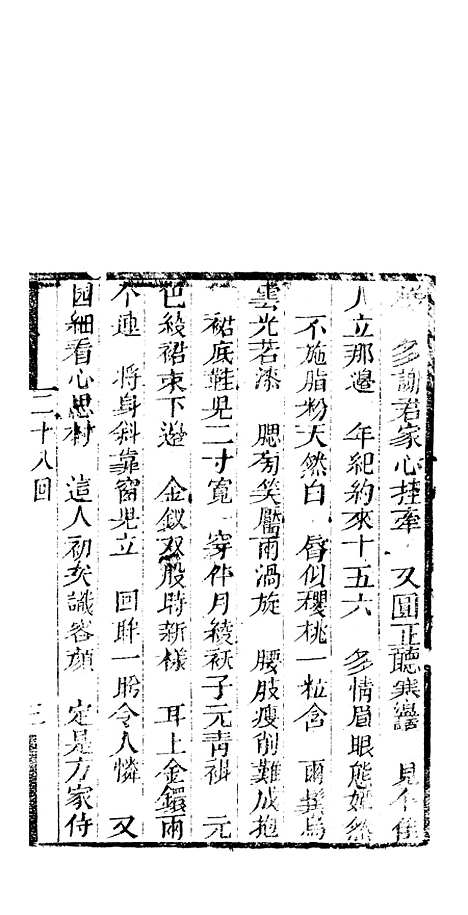 多謝君家心挂牽 又圓正聽無 見个佳
人立那邉 年紀約來十五六 多情眉眼態
不施脂粉天然白 唇似櫻桃一粒含 烏
雲光若漆 腮旁笑靨兩渦旋 腰肢瘦削難成抱
裙底鞋児二寸寬 穿件月綾袄子元青褂 元
色綾裙束下邉 金釵双股時新様 耳上金鐶兩
个連 將身斜靠窗児立 回眸一盼令人憐 又
圓細看心思忖 這人初次識容顔 定是方家侍
二十八回
三